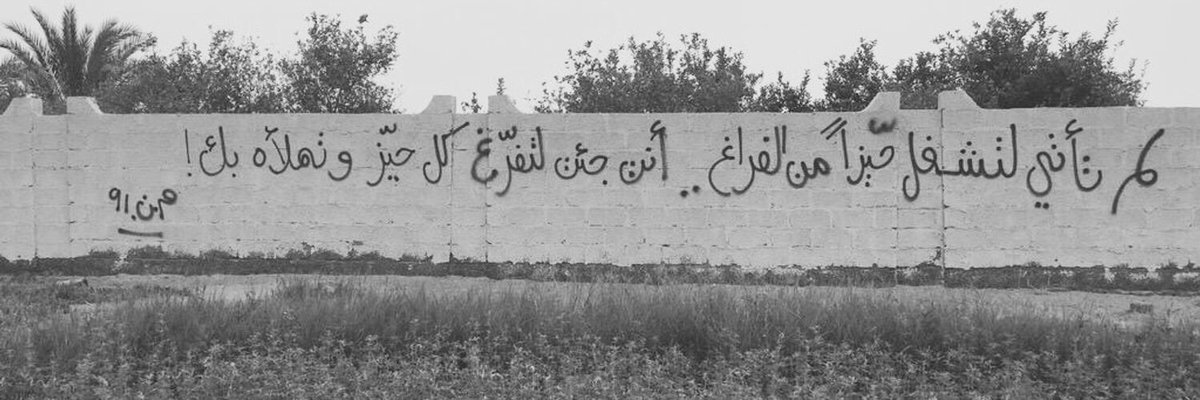 لم تأتي لتشغل حيّزاً من الفراغ .. أنت جئت لتفرّغ كل حيّز وتملأه بك !